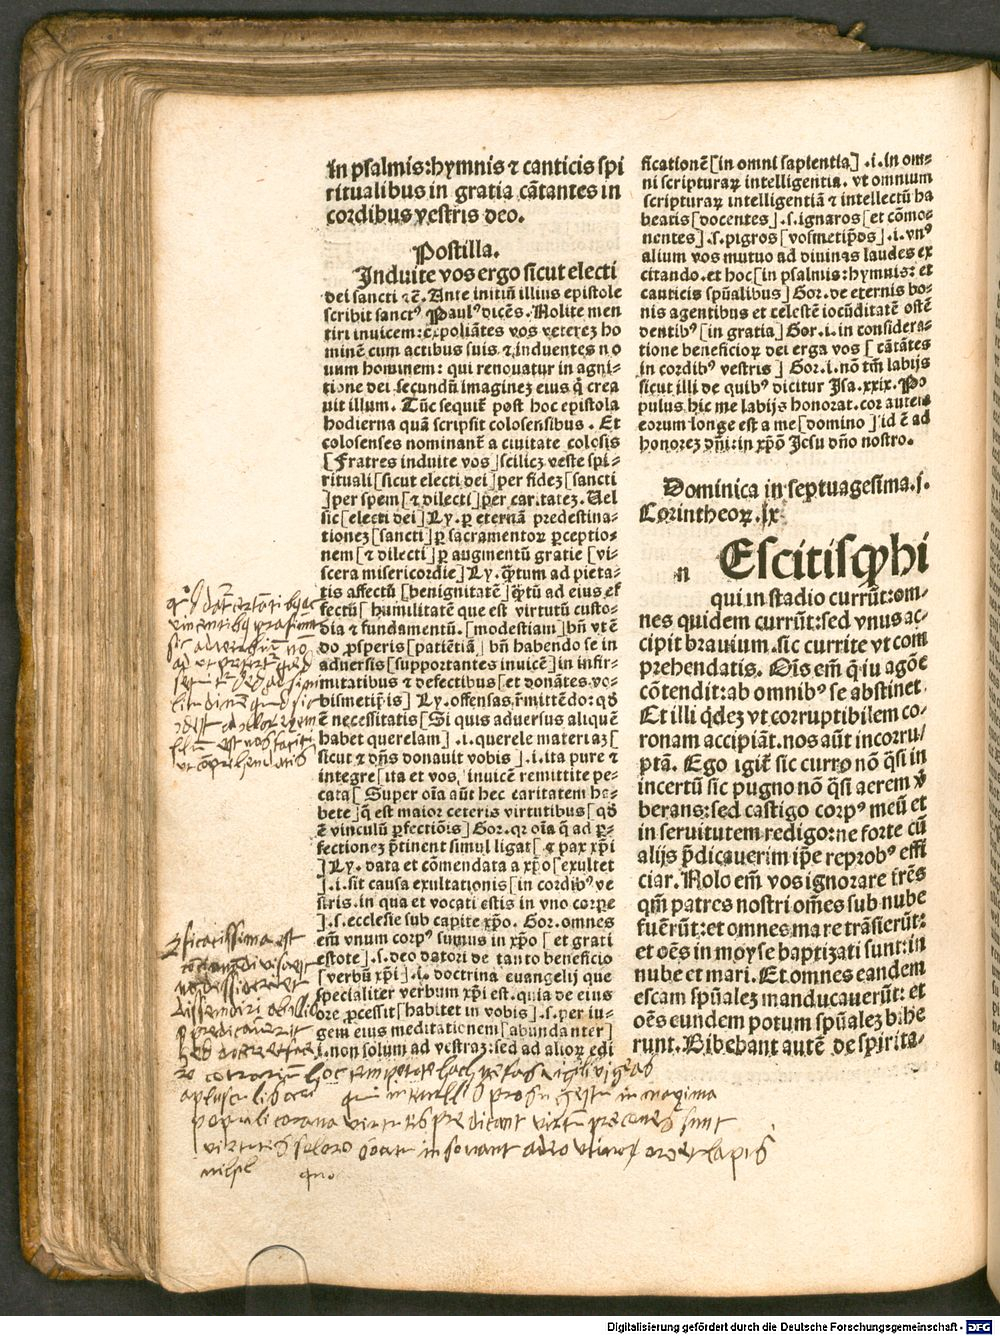 In psalmis:hymnis ⁊ canticis spi
ritualibus in gratia cãtantes in
cordibus vestris deo.
Postilla.
Induite vos ergo sicut electi
dei sancti ⁊cẽ. Ante initiũ illius epistole
scribit sanctꝰ Paulꝰ dicẽs. Nolite men
tiri inuicem: expoliãtes vos veterez ho
minẽ cum actibus suis ⁊ induentes no
uum hominem: qui renouatur in agni⸗
tione dei secundũ imaginez eius q̃ crea
uit illum. Tũc sequit̃ post hoc epistola
hodierna quã scripsit colosensibus. Et
colosenses nominant̃ a ciuitate colosis
[Fratres induite vos]scilicz veste spi⸗
rituali[sicut electi dei]per fidez[sancti
]per spem[⁊ dilecti]per caritatez. Uel
sic[electi dei]Ly. ꝑ eternã predestina⸗
tionez[sancti]ꝑ sacramentoꝝ ꝑceptio⸗
nem[⁊ dilecti]ꝑ augmentũ gratie[vi⸗
scera misericordie]Ly. q̃ꝫtum ad pieta⸗
tis affectũ[benignitatẽ]q̃ꝫtũ ad eius ef
fectũ[humilitatẽ que est virtutũ custo⸗
dia ⁊ fundamentũ.[modestiam]bñ vtẽ
do ꝓsperis[patiẽtiã]bñ habendo se in
aduersis[supportantes inuicẽ]in infir⸗
mitatibus ⁊ defectibus[et donãtes vo⸗
bismetipis]Ly. offensas ꝛmittẽdo: qđ
ẽ necessitatis[Si quis aduersus aliquẽ
habet querelam].i.querele materiaz[
sicut ⁊ dñs donauit vobis].i.ita pure ⁊
integre[ita et vos]inuicẽ remittite pe⸗
cata[Super oĩa aũt hec caritatem ha⸗
bete]q̃ est maior ceteris virtutibus[qđ
ẽ vinculũ ꝑfectiõis]Gor.qꝛ oĩa q̃ ad ꝑ⸗
fectionez ꝑtinent simul ligat[⁊ pax xp̃i
]Ly. data et cõmendata a xp̃o[exultet
].i.sit causa exultationis[in cordibꝰ ve
stris.in qua et vocati estis in vno corpe
].s.ecclesie sub capite xp̃o. Gor.omnes
em̃ vnum corpꝰ sumus in xp̃o[et grati
estote].s.deo datori de tanto beneficio
[verbũ xp̃i].i. doctrina euangelij que
specialiter verbum xp̃i est.quia de eius
ore ꝓcessit[habitet in vobis].s.per iu⸗
gem eius meditationem[abundanter]
i.non solum ad vestraz:sed ad alioꝝ edi
ficationẽ[in omni sapientia].i.in om⸗
ni scripturaꝝ intelligentia. vt omnium
scripturaꝝ intelligentiã ⁊ intellectũ ha
beatis[docentes].s.ignaros[et cõmo⸗
nentes].s.pigros[vosmetip̃os].i.vnꝰ
alium vos mutuo ad diuinas laudes ex
citando.et hoc[in psalmis:hymnis: et
canticis spũalibus]Gor.de eternis bo⸗
nis agentibus et celestẽ iocũditatẽ ostẽ
dentibꝰ[in gratia]Gor.i.in considera⸗
tione beneficioꝝ dei erga vos[cãtãtes
in cordibꝰ vestris]Gor.i.nõ tm̃ labijs
sicut illi de quibꝰ dicitur Isa.xxix. Po
pulus hic me labijs honorat.cor autem
eorum longe est a me[domino]id ẽ ad
honorez dñi:in xp̃o Jesu dño nostro.
Dominica in septuagesima.j.
Corintheoꝝ.ix.
n Escitis ꝙ hi
qui in stadio currũt:om⸗
nes quidem currũt:sed vnus ac⸗
cipit brauium.sic currite vt com
prehendatis. Oĩs em̃ q̃ iu agõe
cõtendit:ab omnibꝰ se abstinet.
Et illi q̃dez vt corruptibilem co⸗
ronam accipiãt.nos aũt incorru⸗
ptã. Ego igit̃ sic curro nõ q̃si in
incertũ sic pugno nõ q̃si aerem v̾
berans:sed castigo corpꝰ meũ et
in seruitutem redigo:ne forte cũ
alijs p̃dicauerim ip̃e reprobꝰ effi
ciar. Nolo em̃ vos ignorare fr̃es
qm̃ patres nostri om̃es sub nube
fuerũt:et omnes mare trãsierũt:
et oẽs in moyse baptizati sunt:in
nube et mari. Et omnes eandem
escam spũalez manducauerũt: et
oẽs eundem potum spũalez bibe
runt. Bibebant autẽ de spirita⸗
Digitalisierung gefördert durch die Deutsche Forschungsgemeinschaft - DFG